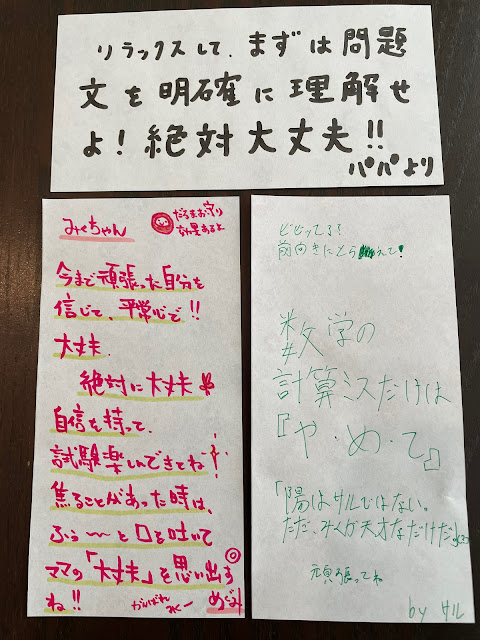 リラックスして、まずは問題
文を明確に理解せ
よ！絶対大丈夫!!
パパより
みくちゃん
だるまお守り
効果あるよ
今まで頑張った自分を
信じて、平常心で!!
大丈夫
絶対に大丈夫
自信を持って、
試験楽しんできてね
焦ることがあった時は、
ふぅ〜と口を吐いて
ママの「大丈夫」を思い出す
ね!!
がんばれ
みくー
めぐみ
ビビってる？
前向きにとらえて！
数学の
計算ミスだけは
『や・め・て』
「陽はサルではない。
ただ、みくが天才なだけだ」
頑張ってね
by サル